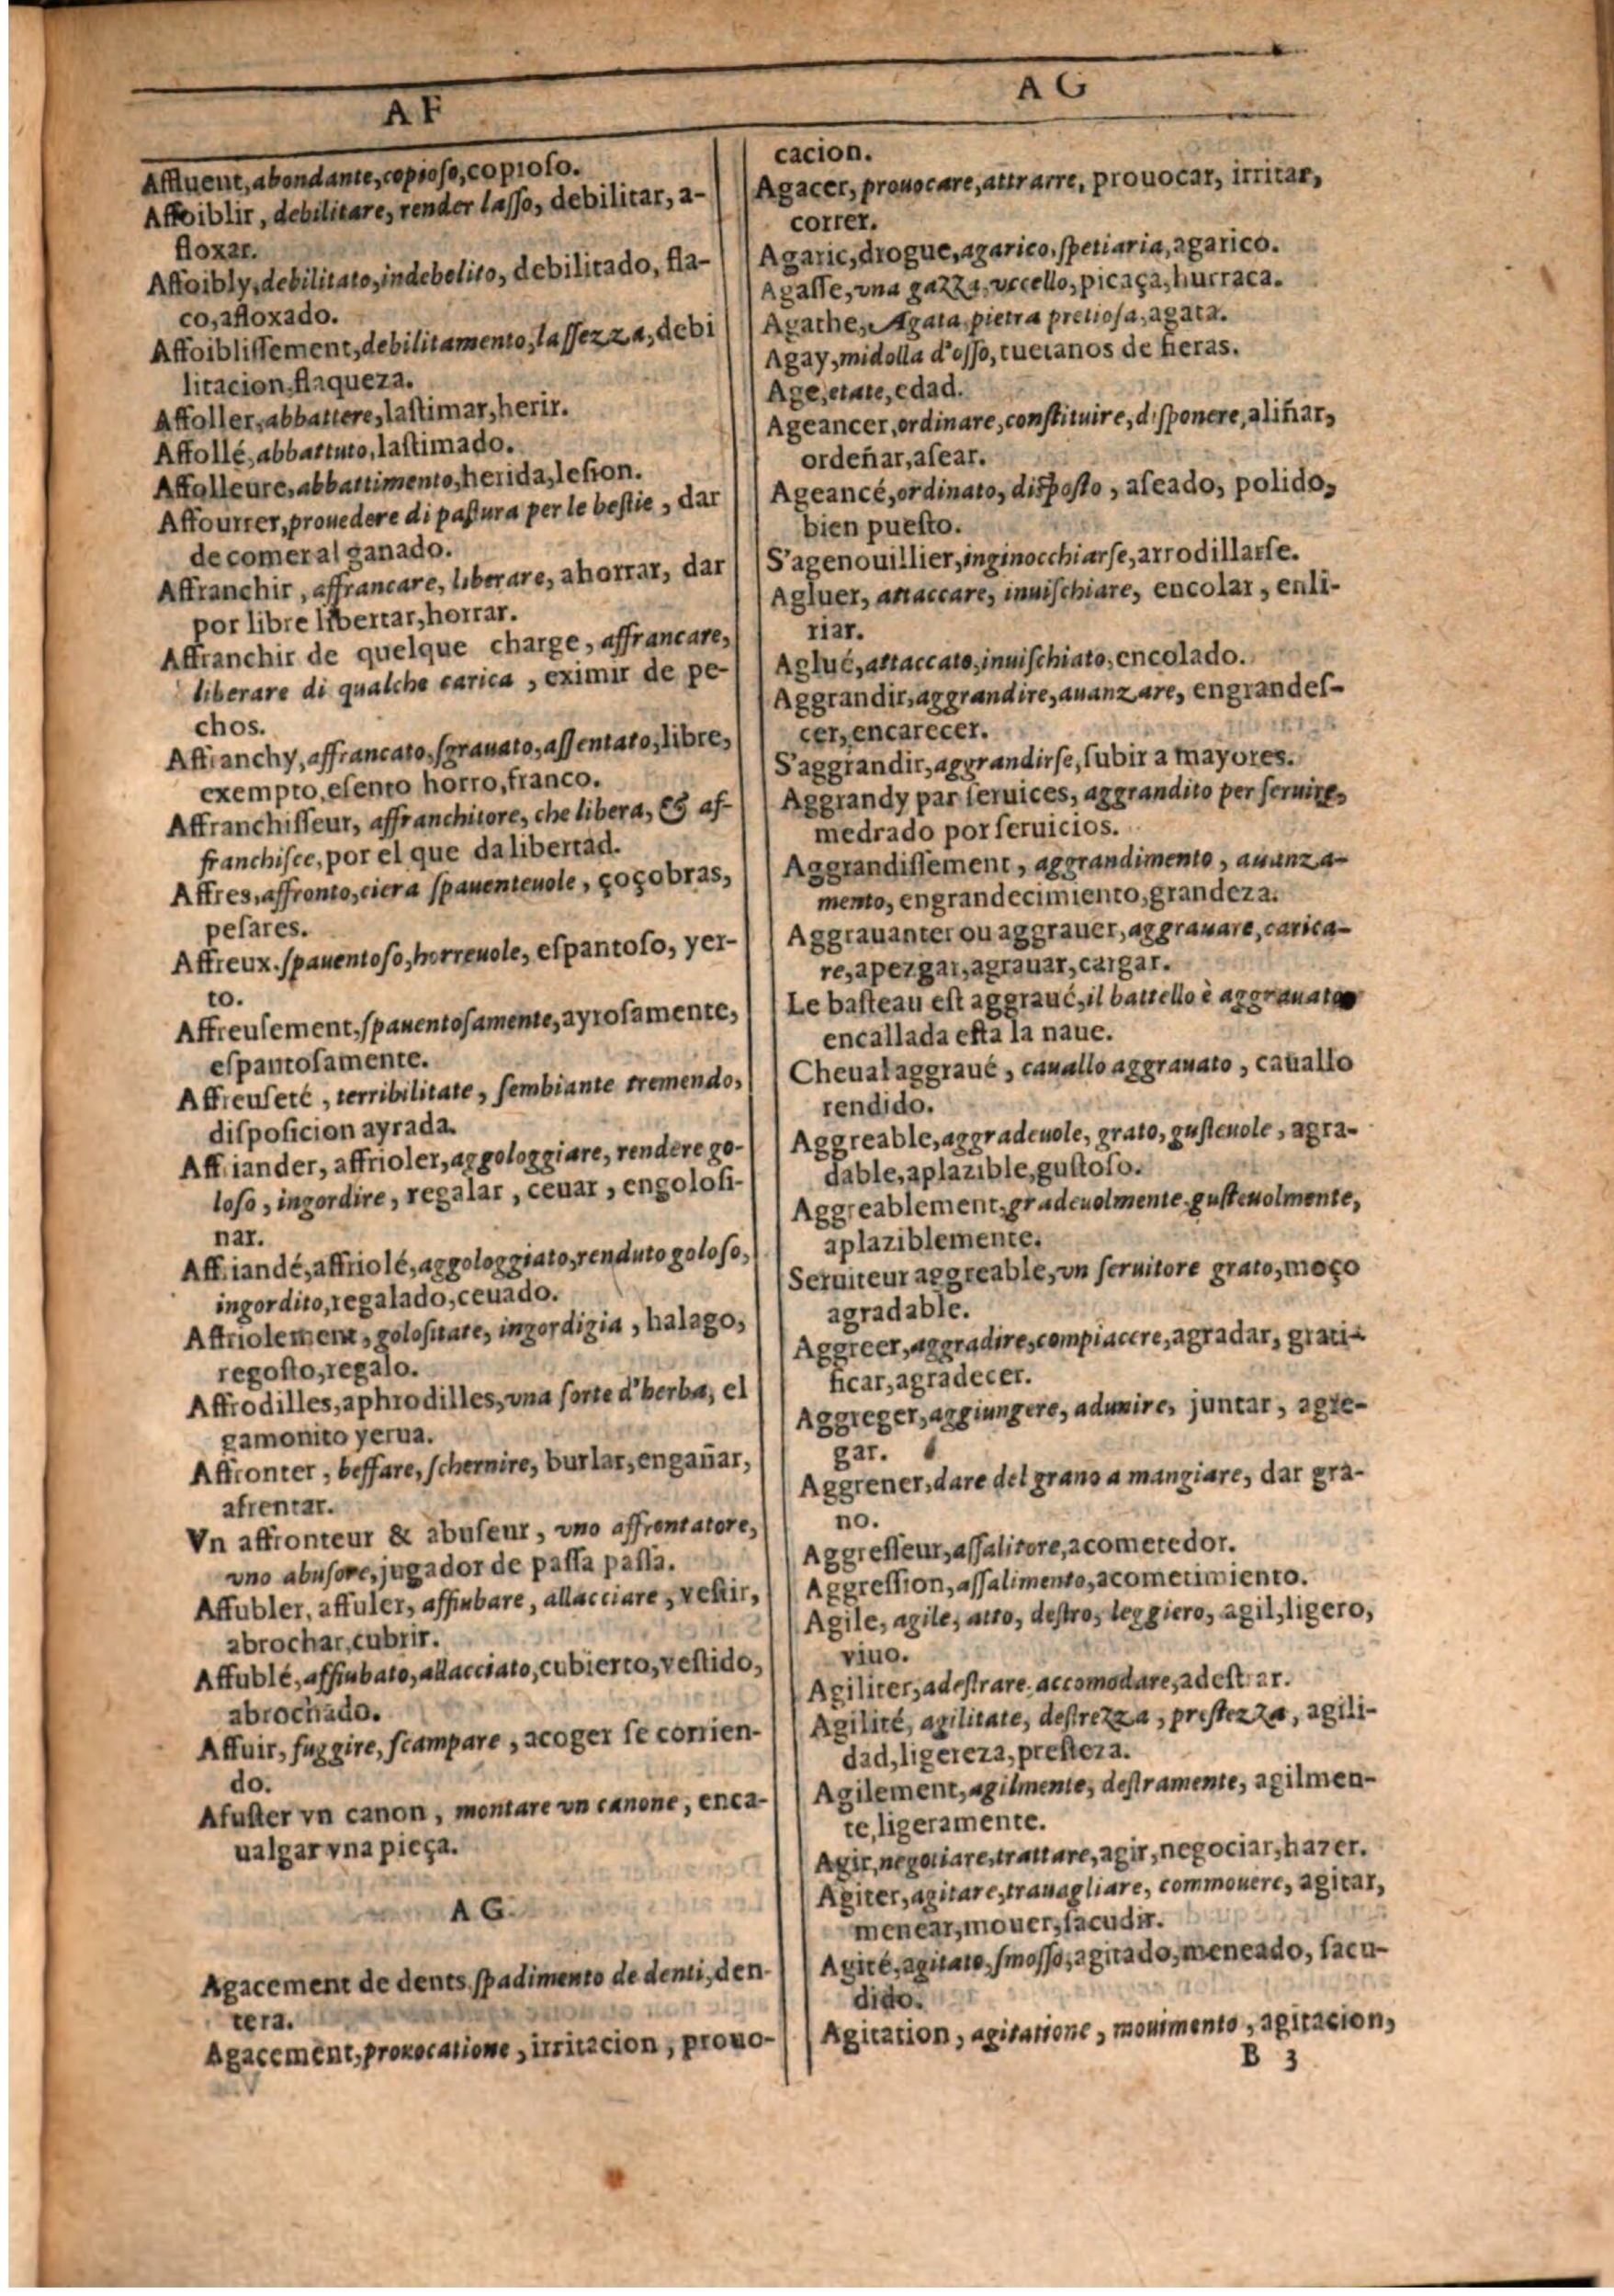 A F
Affluent, abondante, copioso, copioſo.
Affoiblir, debilitare, render laſſo, debilitar, a-
floxar.
Affoibly, debilitato, indebolito, debilitado, fla-
co, afloxado.
Affoibliſſement, debilitamento, laſſezza, debi
litacion, flaqueza.
Affoller, abbattere, laſtimar, herir.
Affollé, abbattuto, laſtimado.
Affolleure, abbattimento, herida, leſion.
Affourrer, prouedere di paſtura per le beſtie, dar
de comer al ganado.
Affranchir, affrancare, liberare, ahorrar, dar
por libre libertar, horrar.
Affranchir de quelque charge, affrancare,
liberare di qualche carica, eximir de pe-
chos.
Affranchy, affrancato, ſgrauato, aſſentato, libre,
exempto, eſento horro, franco.
Affranchiſſeur, affranchitore, che libera, & af-
franchiſce, por el que da libertad.
Affres, affronto, ciera ſpauenteuole, çoçobras,
peſares.
Affreux, ſpauentoſo, horreuole, eſpantoſo, yer-
to.
Affreuſement, ſpauentoſamente, ayroſamente,
eſpantoſamente.
Affreuſeté, terribilitate, ſembiante tremendo,
diſpoſicion ayrada.
Affriander, affrioler, aggologgiare, rendere go-
loſo, ingordire, regalar, ceuar, engoloſi-
nar.
Affriandé, affriolé, aggologgiato, renduto goloſo,
ingordito, regalado, ceuado.
Affriolement, goloſitate, ingordigia, halago,
regoſto, regalo.
Affrodilles, aphrodilles, vna ſorte d'herba, el
gamonito yerua.
Affronter, beffare, ſchernire, burlar, engañar,
afrentar.
Vn affronteur & abuſeur, vno affrontatore,
vno abuſore, jugador de paſſa paſſa.
Affubler, affuler, affiubare, allacciare, veſtir,
abrochar, cubrir.
Affublé, affiubato, allacciato, cubierto, veſtido,
abrochado.
Affuir, fuggire, ſcampare, acoger ſe corrien-
do.
Afuſter vn canon, montare vn canone, enca-
ualgar vna pieça.
A G.
Agacement de dents, ſpadimento de denti, den-
tera.
Agacement, prouocatione, irritacion, prouo-
A G
cacion.
Agacer, prouocare, attrarre, prouocar, irritar,
correr.
Agaric, drogue, agarico, ſpetiaria, agarico.
Agaſſe, vna gazza, vccello, picaça, hurraca.
Agathe, Agata, pietra pretioſa, agata.
Agay, midolla d'oſſo, tuetanos de fieras.
Age, etate, edad.
Ageancer, ordinare, conſtituire, diſponere, aliñar,
ordeñar, aſear.
Ageancé, ordinato, diſpoſto, aſeado, polido,
bien pueſto.
S'agenouillier, inginocchiarſe, arrodillarſe.
Agluer, attaccare, inuiſchiare, encolar, enli-
riar.
Aglué, attaccato, inuiſchiato, encolado.
Aggrandir, aggrandire, auanzare, engrandeſ-
cer, encarecer.
S'aggrandir, aggrandirſe, ſubir a mayores.
Aggrandy par ſeruices, aggrandito per ſeruire,
medrado por ſeruicios.
Aggrandiſſement, aggrandimento, auanza-
mento, engrandecimiento, grandeza.
Aggrauanter ou aggrauer, aggrauare, carica-
re, apezgar, agrauar, cargar.
Le baſteau eſt aggraué, il battello è aggrauato
encallada eſta la naue.
Cheual aggraué, cauallo aggrauato, cauallo
rendido.
Aggreable, aggradeuole, grato, guſteuole, agra-
dable, aplazible, guſtoſo.
Aggreablement, gradeuolmente, guſteuolmente,
aplaziblemente.
Seruiteur aggreable, vn ſeruitore grato, moço
agradable.
Aggreer, aggradire, compiacere, agradar, grati-
ficar, agradecer.
Aggreger, aggiungere, adunire, juntar, agre-
gar.
Aggrener, dare del grano a mangiare, dar gra-
no.
Aggreſſeur, aſſalitore, acometedor.
Aggreſſion, aſſalimento, acometimiento.
Agile, agile, atto, deſtro, leggiero, agil, ligero,
viuo.
Agiliter, adeſtrare, accomodare, adeſtrar.
Agilité, agilitate, deſtrezza, preſtezza, agili-
dad, ligereza, preſteza.
Agilement, agilmente, deſtramente, agilmen-
te, ligeramente.
Agir, negotiare, trattare, agir, negociar, hazer.
Agiter, agitare, trauagliare, commouere, agitar,
menear, mouer, ſacudir.
Agité, agitato, ſmoſſo, agitado, meneado, ſacu-
dido.
Agitation, agitatione, mouimento, agitacion,
B 3